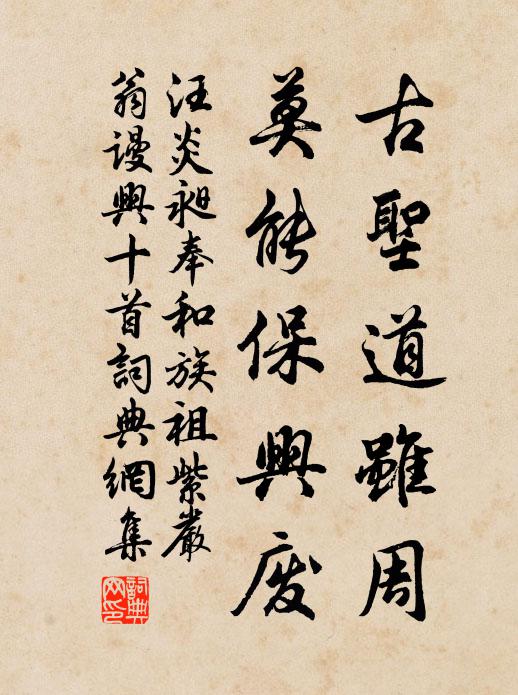 古聖道雖周
莫能保興废
汪炎昶奉和族祖紫巖
翁謾興十首詞典網集
詞典
网印